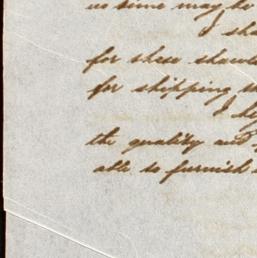 us some may be
I sha
for these shawl
for shipping th
I be
the quality and
able to furnish